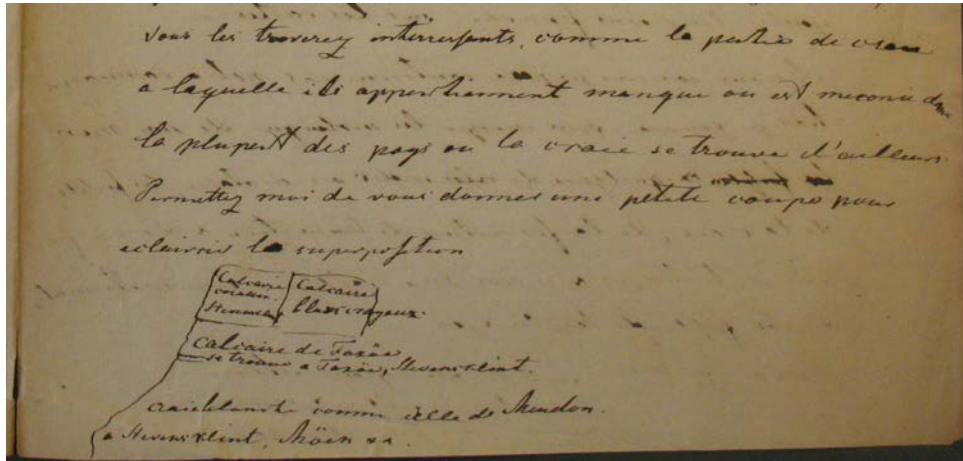 vous les troverez interressants, comme la partie de craie
a laquelle ils appartiennent manque ou est meconnu dans
la plupart des pays ou la craie se trouve d'ailleurs.
Permettez moi de vous donner une petite coupe pour
eclaircir la superposition
Calcaire Calcaire
Stevens blanc crayeux.
Calcaire de Faxöe
se trouve a Faxöe, Stevensklint.
craie blanche comme celle de Meudon.
a Stevensklint, Möen